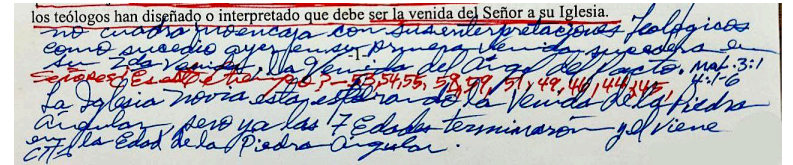 los teólogos han diseñado o interpretado que debe ser la venida del Señor a su Iglesia.
no cuadra no encaja con sus interpretaciones Teológicas
como sucedio ayer en su primera venida sucedera en
su 2da venida. La Venida del Angel del Pacto. Mal. 3:1
-1-
4:1-6
Señores! Es este e tiempo? - 53, 54, 55, 59, 51, 49, 46, 44, 45,
La Iglesia novia esta esperando la Venida de la Piedra
Angular, pero ya las 7 Edades terminaron y el viene
en la Edad de la Piedra Angular.